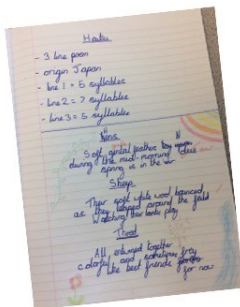 Haiku
- 3 line poem
- origin Japan
- line 1 = 5 syllables
- line 2 = 7 syllables
- line 3 = 5 syllables
Soft gental feather lay upon
during the mid-morning dew
spring is in the air
Sheep
Their soft white wool bounced
as they leaped around the field
Watching their lambs play
All entwined together
colorful and sometimes fray
like best friends for now